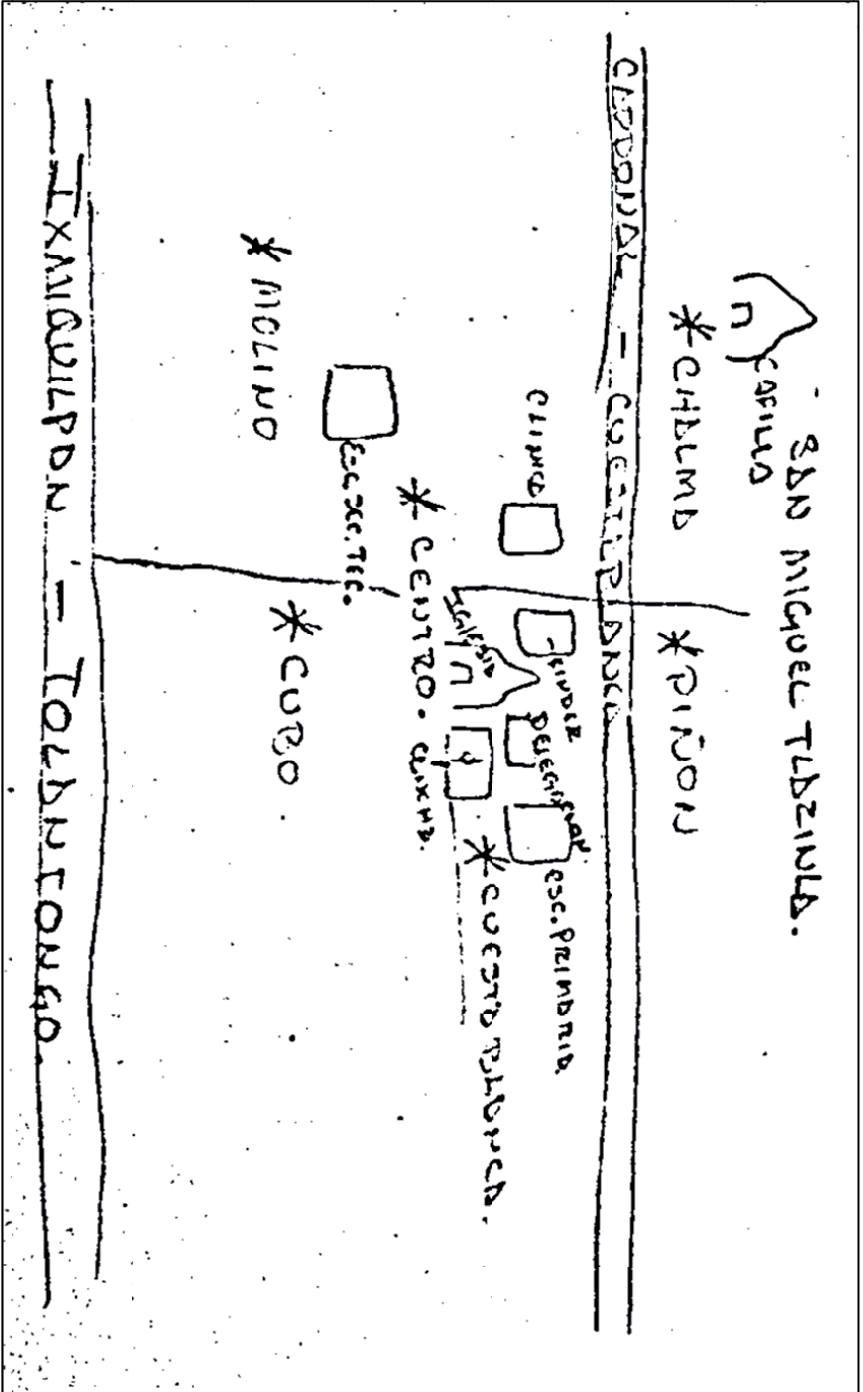 SAN MIGUEL TLAZINLA.
CAPILLA
*CHALMA
*PIÑON
CARDONAL - CUESTA BLANCA
CLINICA
KINDER
DELEGACION.
ESC. PRIMARIA.
IGLESIA
*CUESTA BLANCA.
*CENTRO.
CANCHA.
ESC. SEC. TEC.
*MOLINO
*CUBO
IXMIQUILPAN - TOLANTONGO.